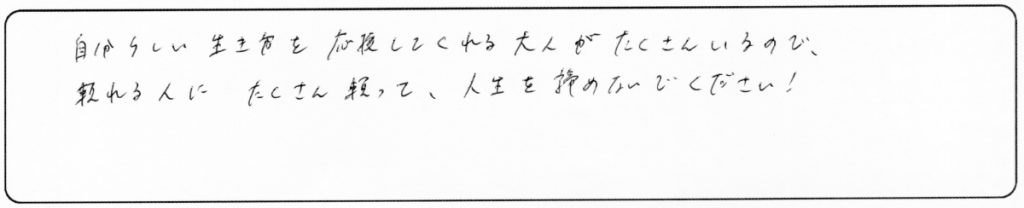 自分らしい生き方を応援してくれる大人がたくさんいるので、
頼れる人にたくさん頼って、人生を諦めないでください！